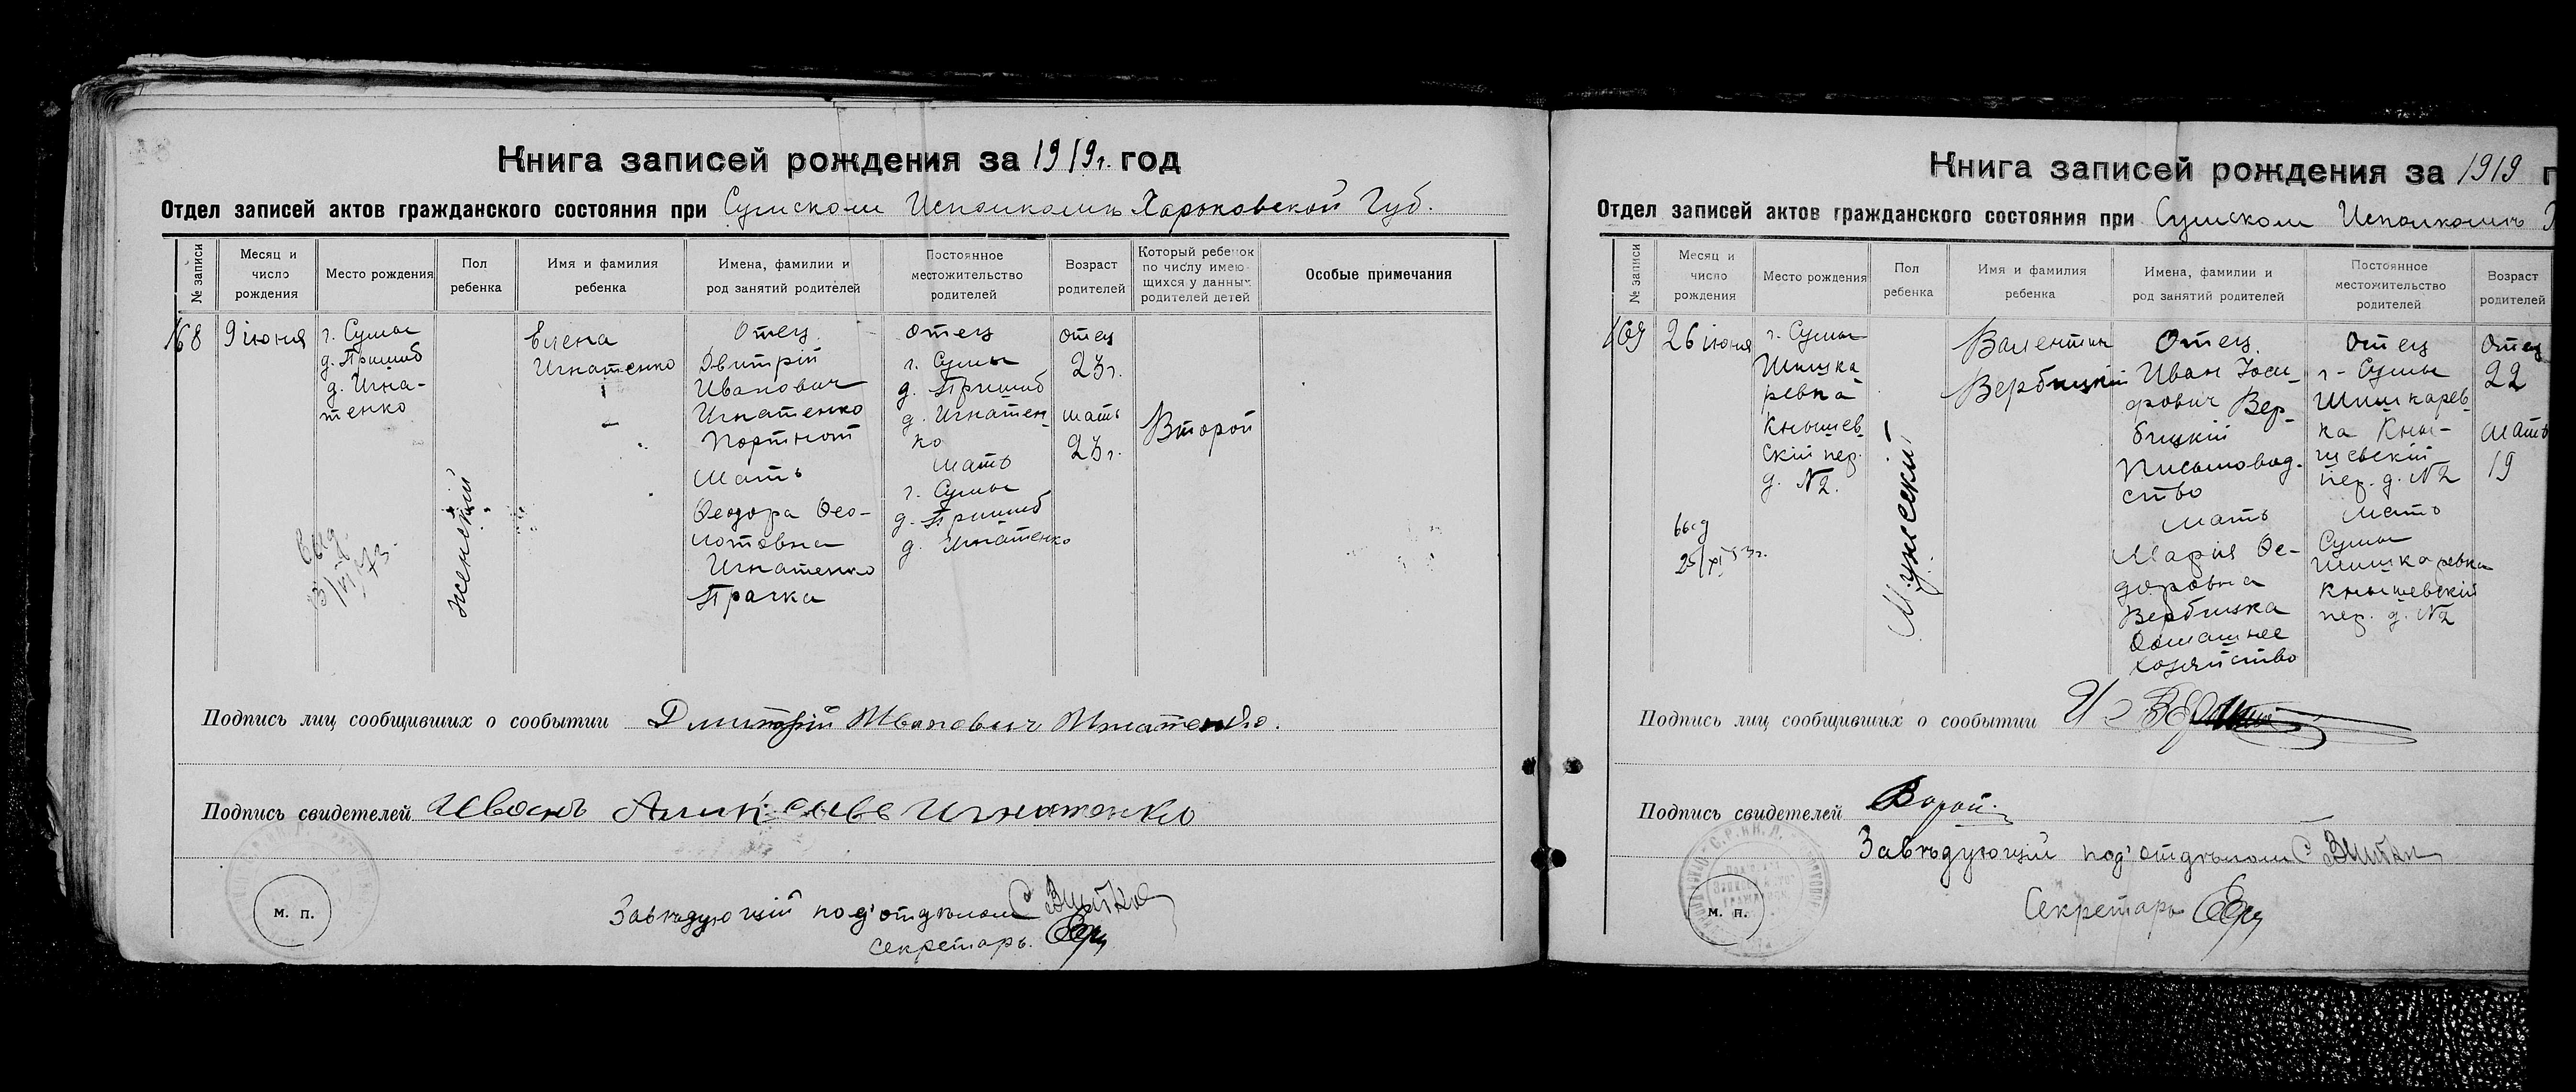 Книга записей рождения за 1919г. год
Отдел записей актов гражданского состояния при Сумском Исполкомѣ Харьковской Губ.
№ записи
Месяц и
число
рождения
Место рождения
Пол
ребенка
Имя и фамилия
ребенка
Имена, фамилии и
род занятий родителей
Постоянное
местожительство
родителей
Возраст
родителей
Который ребенок
по числу имею-
щихся у данных
родителей детей
Особые примечания
168
9 июня
г. Сумы
д. Пришиб
д. Игна-
тенко
Женский
Елена
Игнатенко
Отец
Дмитрій
Иванович
Игнатенко
Портной
Мать
Феодора Фео-
Игнатенко
Прачка
отец
г. Сумы
д. Пришиб
д. Игнатен-
ко
мать
г. Сумы
д. Пришиб
д. Игнатенко
отец
23 г.
мать
23 г.
Второй
Подпись лиц сообщивших о сообытии Дмитрій Иванович Игнатенко.
Подпись свидетелей Иванъ Игнатенко
м. п.
Завѣдующій под'отдѣлом
секретарь.
Книга записей рождения за 1919 г
Отдел записей актов гражданского состояния при Сумском Исполкомѣ
№ записи
Месяц и
число
рождения
Место рождения
Пол
ребенка
Имя и фамилия
ребенка
Имена, фамилии и
род занятий родителей
Постоянное
местожительство
родителей
Возраст
родителей
169
26 июня
г. Сумы
Шишка
ревка
Кнышев
скій пер.
д. №2.
Мужеский
Валентин
Вербицкій
Отец
Иван Іоси-
фович Вер-
бицкій
Письмовод-
ство
Мать
Марія Фе-
доровна
Вербицка
Домашнее
хозяйство
Отец
г. Сумы
Шишкарев-
ка Кны-
шевскій
пер. д. №2
Мать
Сумы
Шишкаревка
Кнышевскій
пер. д. №2
Отец
22
мать
19
выд
Подпись лиц сообщивших о сообытии
Подпись свидетелей
м. п.
Завѣдующій под'отдѣлом
Секретарь